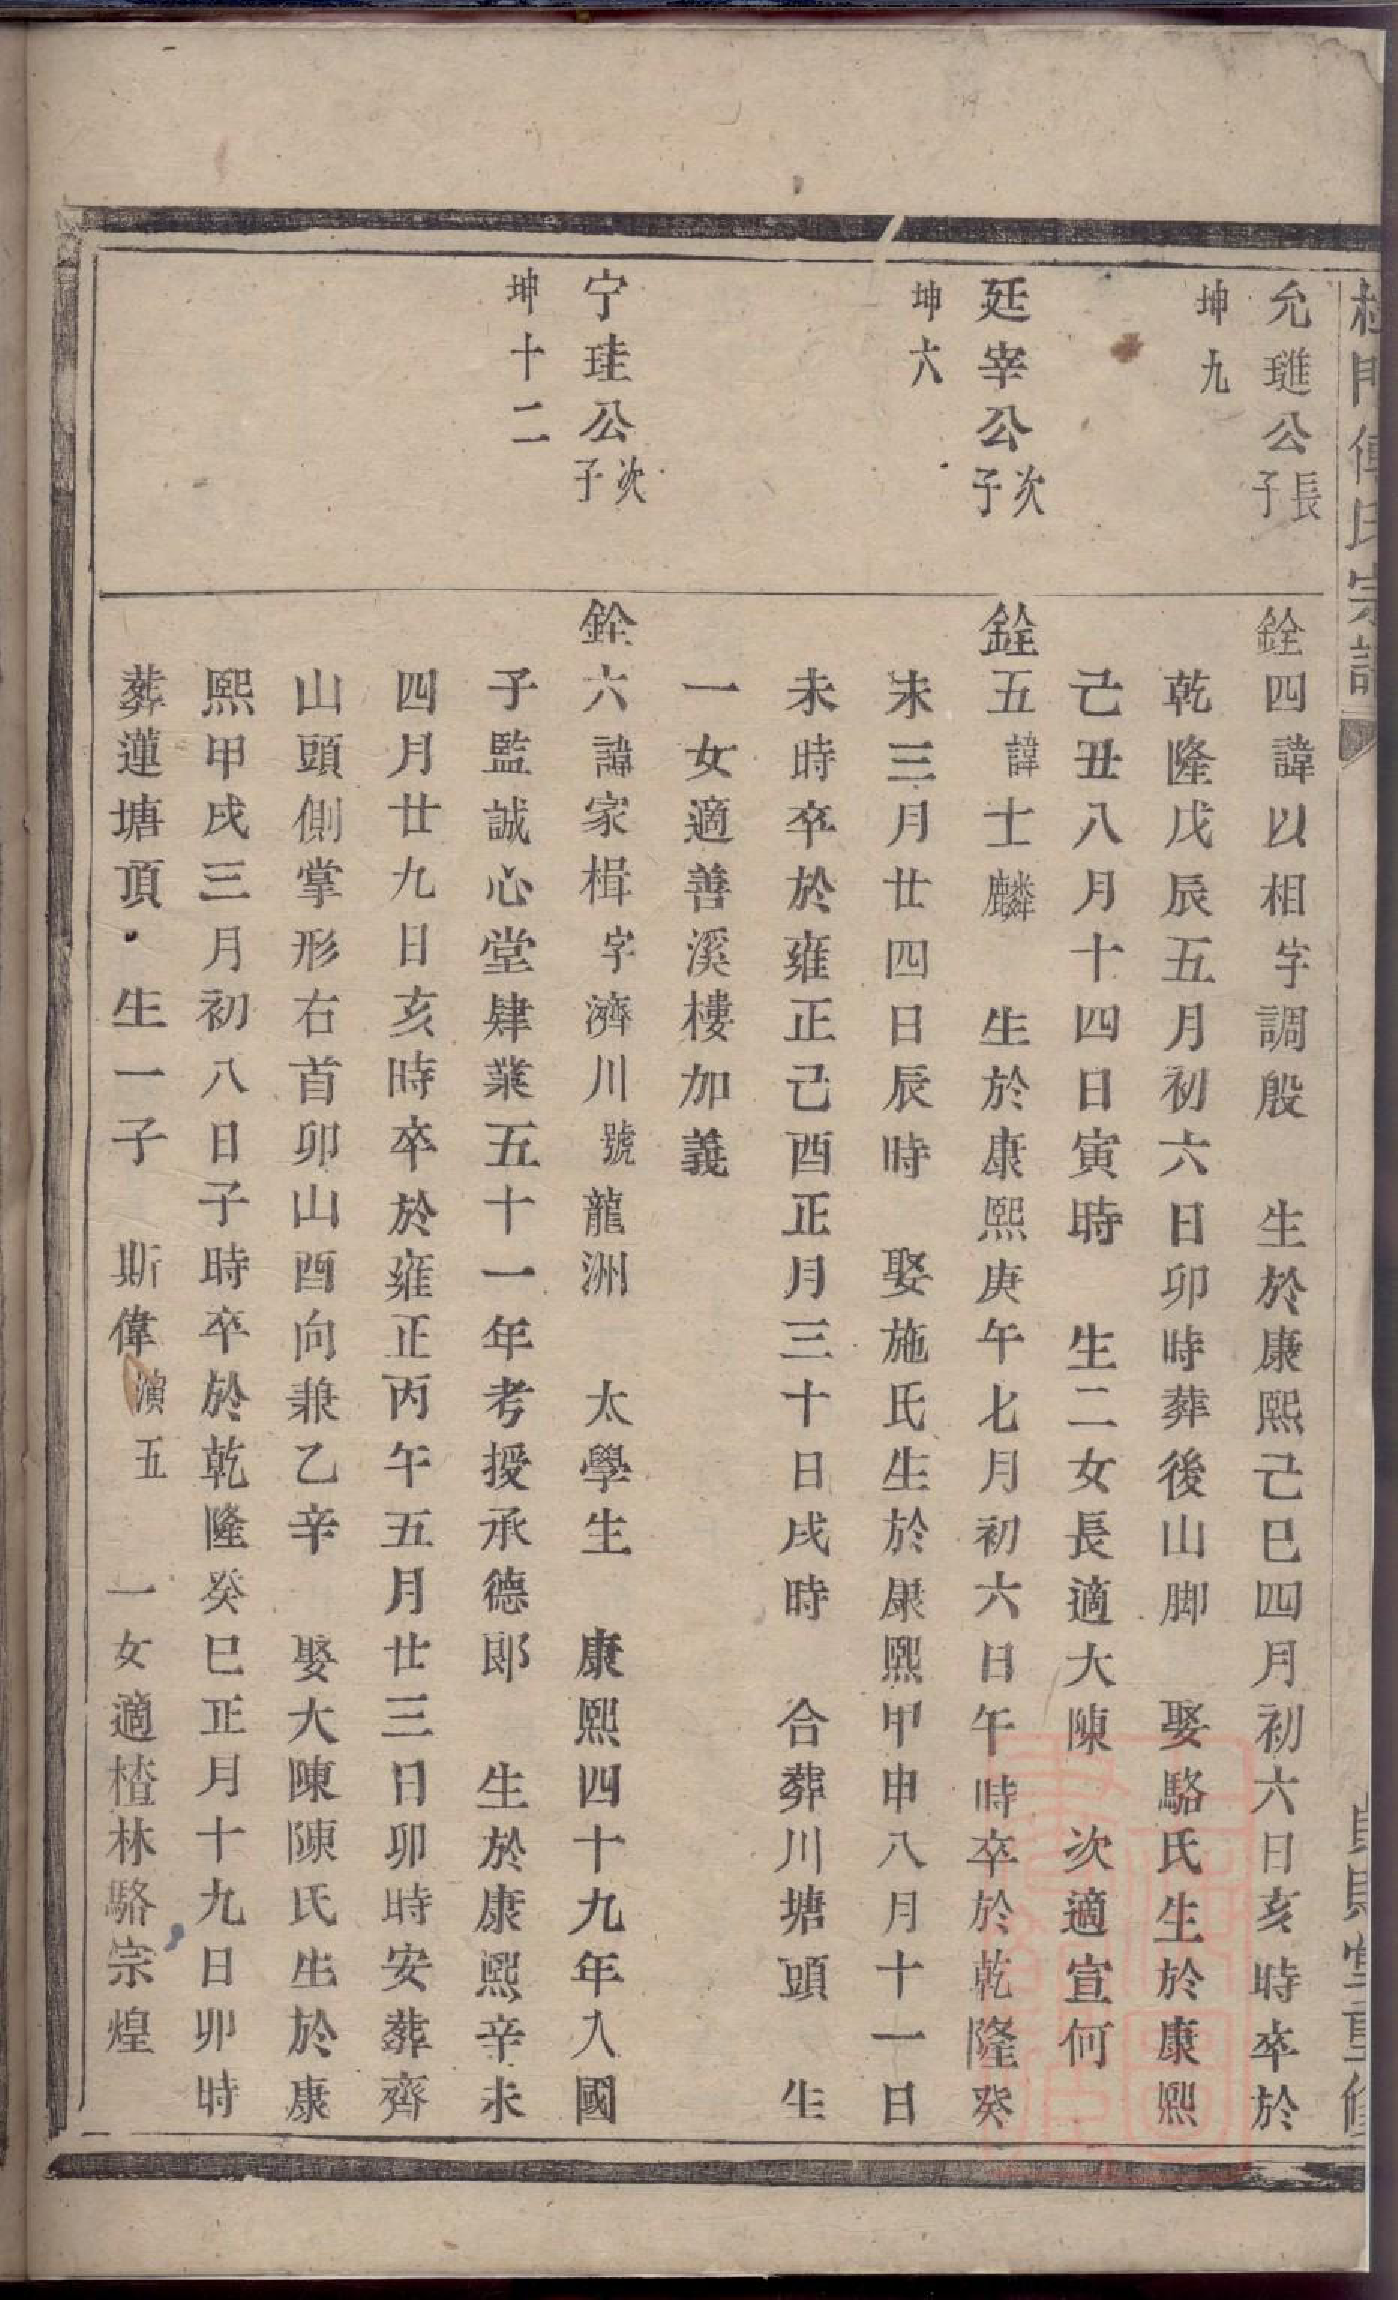 傅氏宗譜
允璡公長子
坤九
銓四諱以相字調殷 生於康熙己巳四月初六日亥時卒於
乾隆戊辰五月初六日卯時葬後山脚 娶駱氏生於康熙
己丑八月十四日寅時 生二女長適大陳 次適宣何
廷宰公次子
坤六
銓五諱士麟 生於康熙庚午七月初六日午時卒於乾隆癸
未三月廿四日辰時 娶施氏生於康熙甲申八月十一日
未時卒於雍正己酉正月三十日戌時 合葬川塘頭 生
一女適善溪樓加義
宁珪公次子
坤十二
銓六諱家楫字濟川號龍洲 太學生 康熙四十九年入國
子監誠心堂肄業五十一年考授承德郎 生於康熙辛未
四月廿九日亥時卒於雍正丙午五月廿三日卯時安葬齊
山頭側掌形右首卯山酉向兼乙辛 娶大陳陳氏生於康
熙甲戌三月初八日子時卒於乾隆癸巳正月十九日卯時
葬蓮塘頂·生一子 斯偉演五 一女適楂林駱宗煌
堂重修